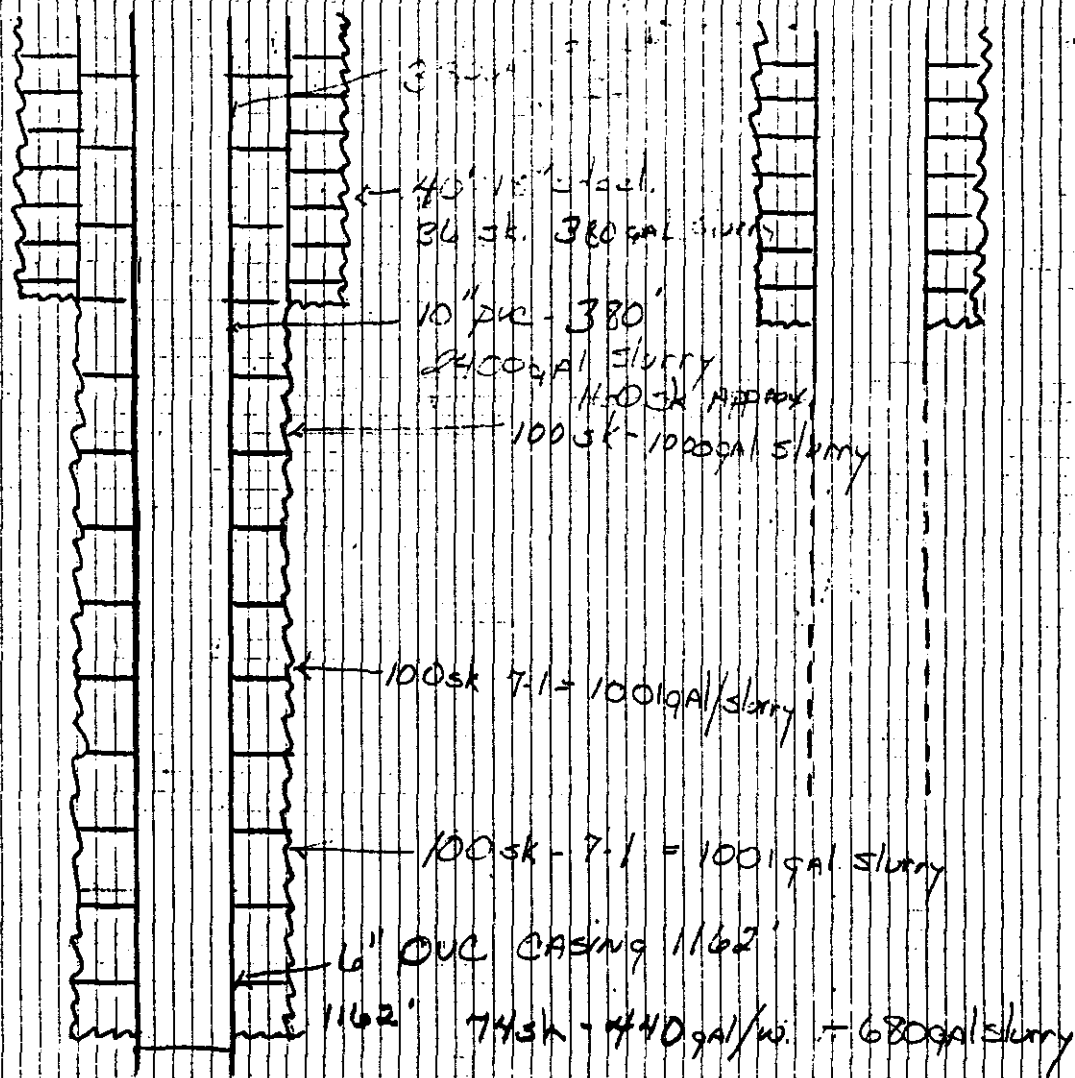 40'
36 sk. 380 gal slurry
10" pvc - 380'
2400 gal slurry
sk Approx
100 sk - 1000 gal slurry
100 sk 7-1 = 1001 gal/slurry
100 sk - 7-1 = 1001 gal slurry
6" PVC CASING 1162'
1162' 74 sk - 440 gal/w. - 680 gal slurry